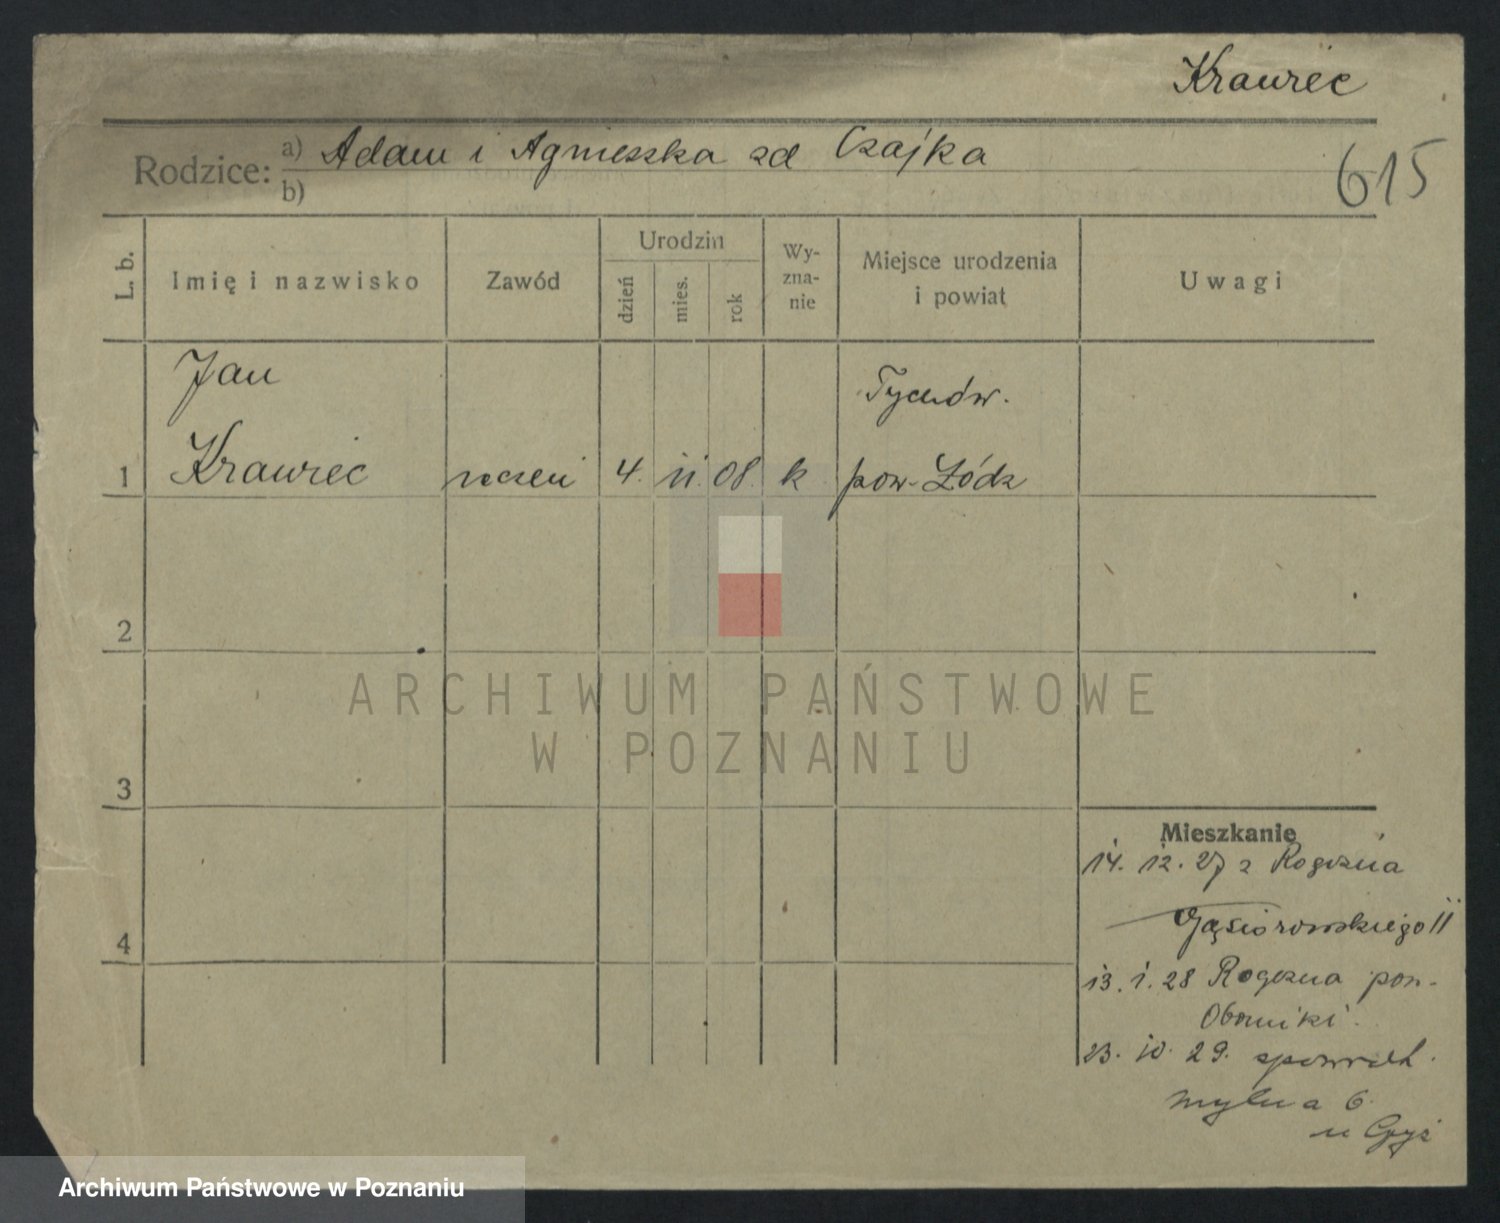 Krawiec
Rodzice: a) Adam i Agnieszka zd Czajka
b)
615
L. b.
Imię i nazwisko
Zawód
Urodzin
dzień
mies.
rok
Wy-
zna-
nie
Miejsce urodzenia
i powiat
Uwagi
Jan
Tychów.
1 Krawiec uczeń 4. 11. 08. k pow. Łódz
2
3
4
ARCHIWUM PAŃSTWOWE
W POZNANIU
Mieszkanie
14. 12. 27 z Rogozna
Gąsiorowskiego 11
13. 1. 28 Rogozna pow.
Oborniki.
23. 10. 29. spowrot.
Mylna 6.
u
Archiwum Państwowe w Poznaniu